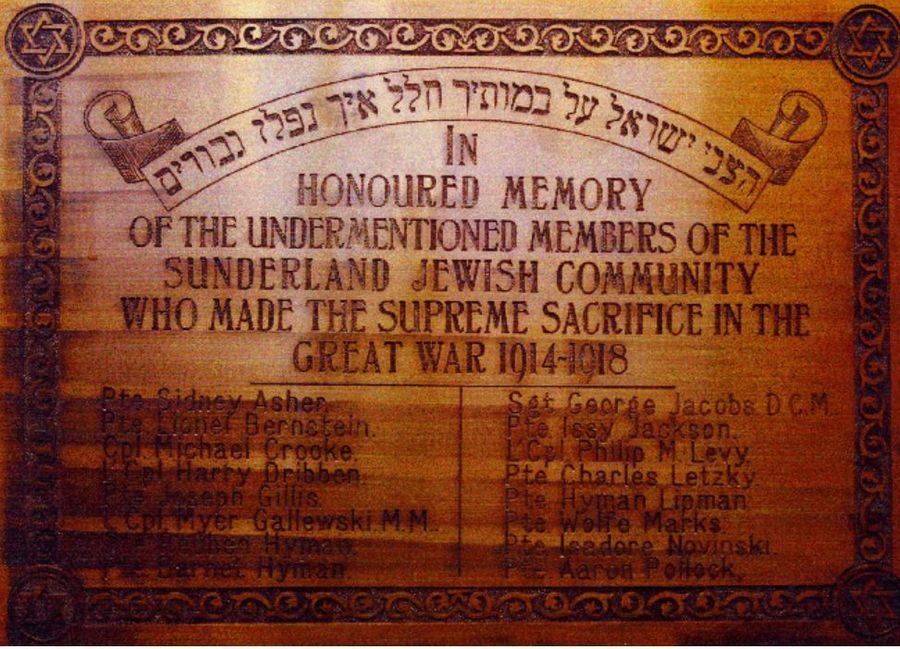 הצבי ישראל על במותיך חלל איך נפלו גבורים
IN
HONOURED MEMORY
OF THE UNDERMENTIONED MEMBERS OF THE
SUNDERLAND JEWISH COMMUNITY
WHO MADE THE SUPREME SACRIFICE IN THE
GREAT WAR 1914-1918
Pte Sidney Asher.
Pte Lionel Bernstein.
Cpl Michael Crooke.
L'Cpl Harry Dribben.
Pte Joseph Gillis.
L'Cpl Myer Gallewski M.M.
Hyman.
Pte Barnet Hyman.
Sgt George Jacobs D.C.M.
Pte Issy Jackson.
L'Cpl Philip M Levy.
Pte Charles Letzky.
Pte Hyman Lipman
Pte Wolfe Marks.
Pte Isadore Novinski.
Pte Aaron Pollock.